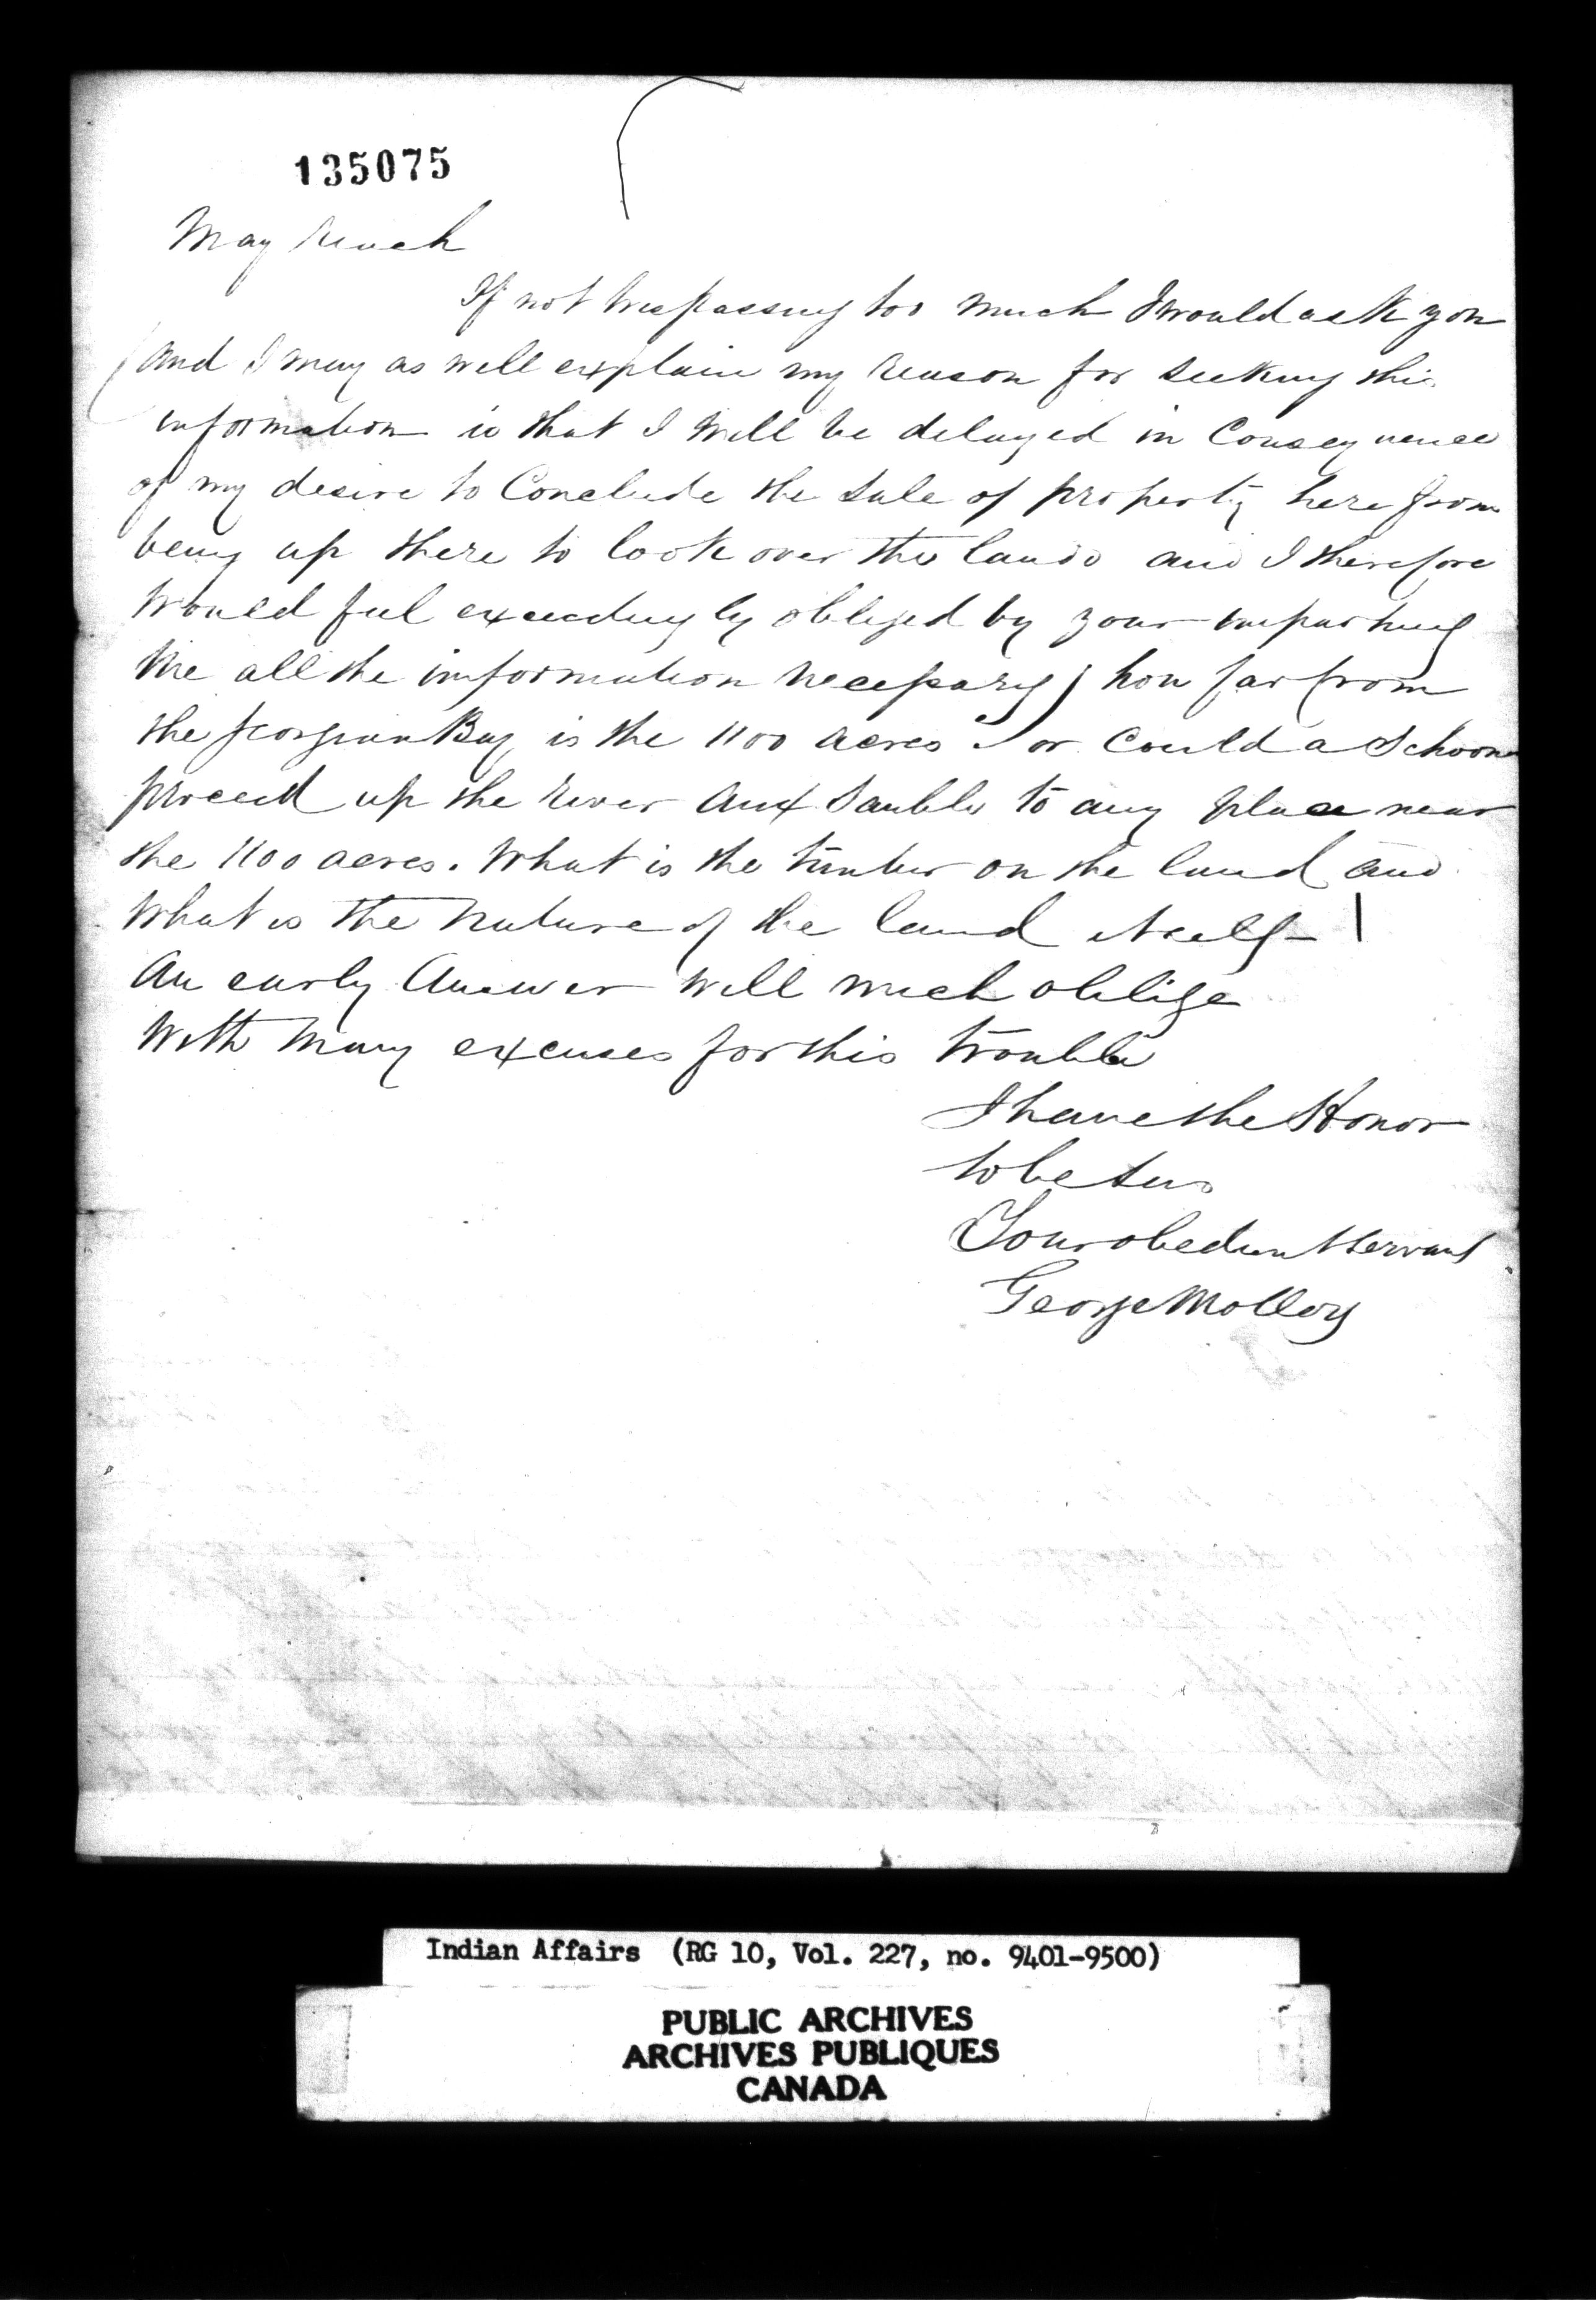 135075
May reach
If not trespassing too much I would ask you
(and I may as well explain my reason for seeking this
information is that I will be delayed in Consequence
of my desire to Conclude the sale of property here from
being up there to look over the lands and I therefore
would feel exceedingly obliged by your imparting
me all the information necessary) how far from
the Georgian Bay is the 1100 acres or Could a Schooner
proceed up the river Aux Sauble to any place near
the 1100 acres. What is the timber on the land and
What is the nature of the land itself
An early Answer will much oblige
With many excuses for this trouble
I have the Honor
to be Sir
Your obedient Servant
George Molloy
Indian Affairs (RG 10, Vol. 227, no. 9401-9500)
PUBLIC ARCHIVES
ARCHIVES PUBLIQUES
CANADA